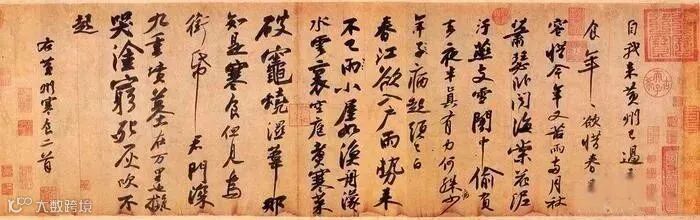 自我來黃州已過三
食年〻欲惜春
容惜今年又苦雨兩月秋
蕭瑟卧聞海棠花泥
汙燕支雪闇中偷負
去夜半真有力何殊少
年子病起頭已白
春江欲入戶雨勢來
不已雨小屋如漁舟濛
水雲裏空庖煮寒菜
破竈燒濕葦那
知是寒食但見烏
銜帋 君門深
九重墳墓在万里也擬
哭塗窮死灰吹不
起
右黃州寒食二首
大数跨境